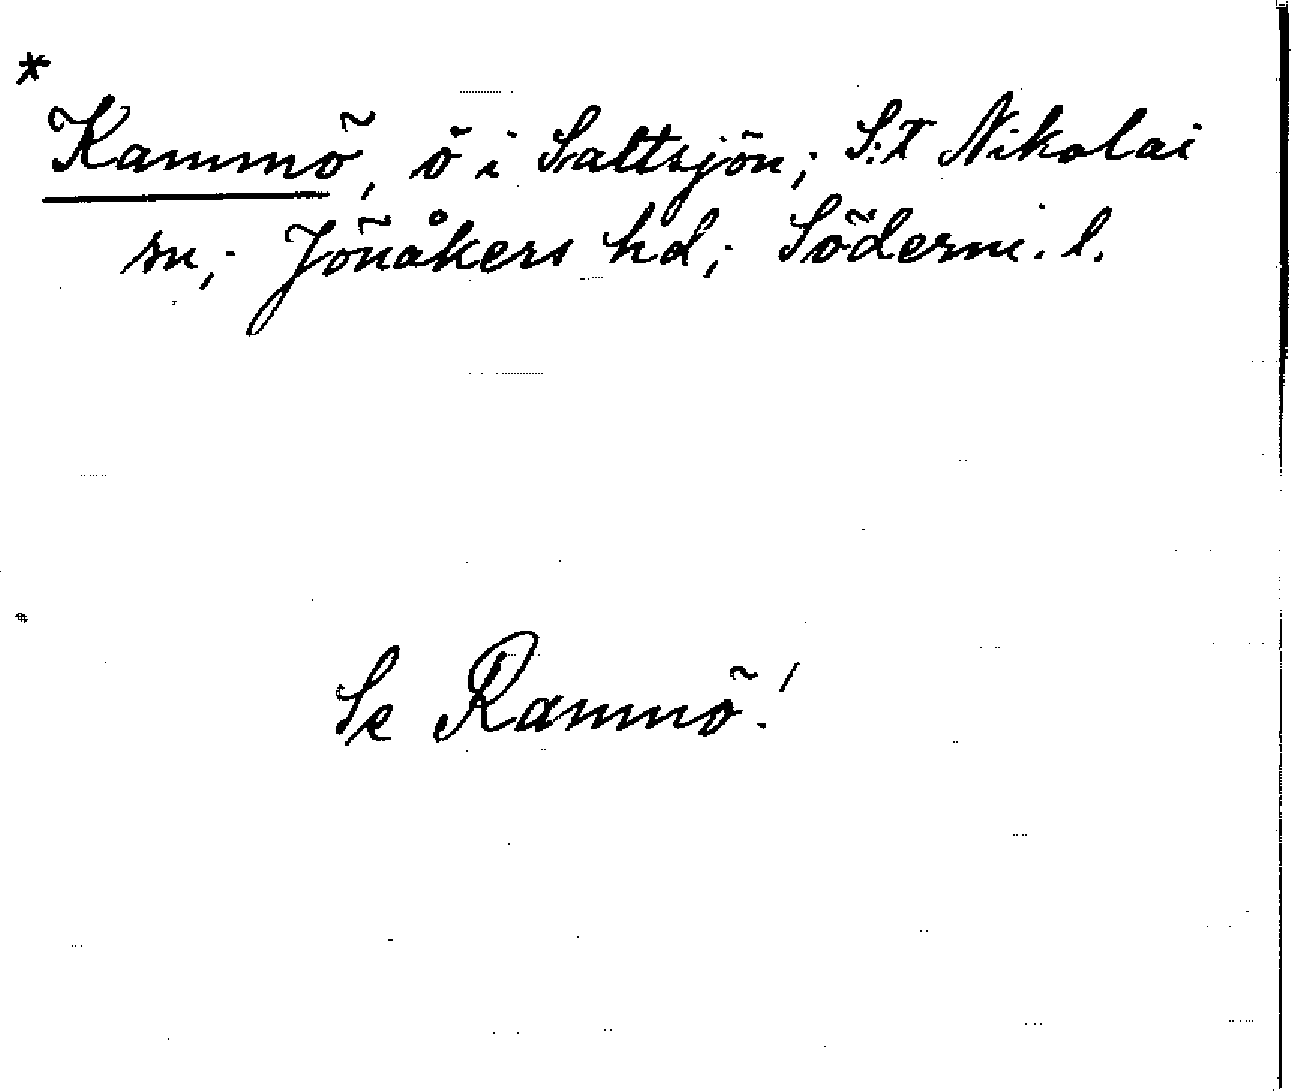 *
Kammö, ö i Saltsjön; S:t Nikolai
sn; Jönåkers hd; Söderm. l.
Se Rammö!